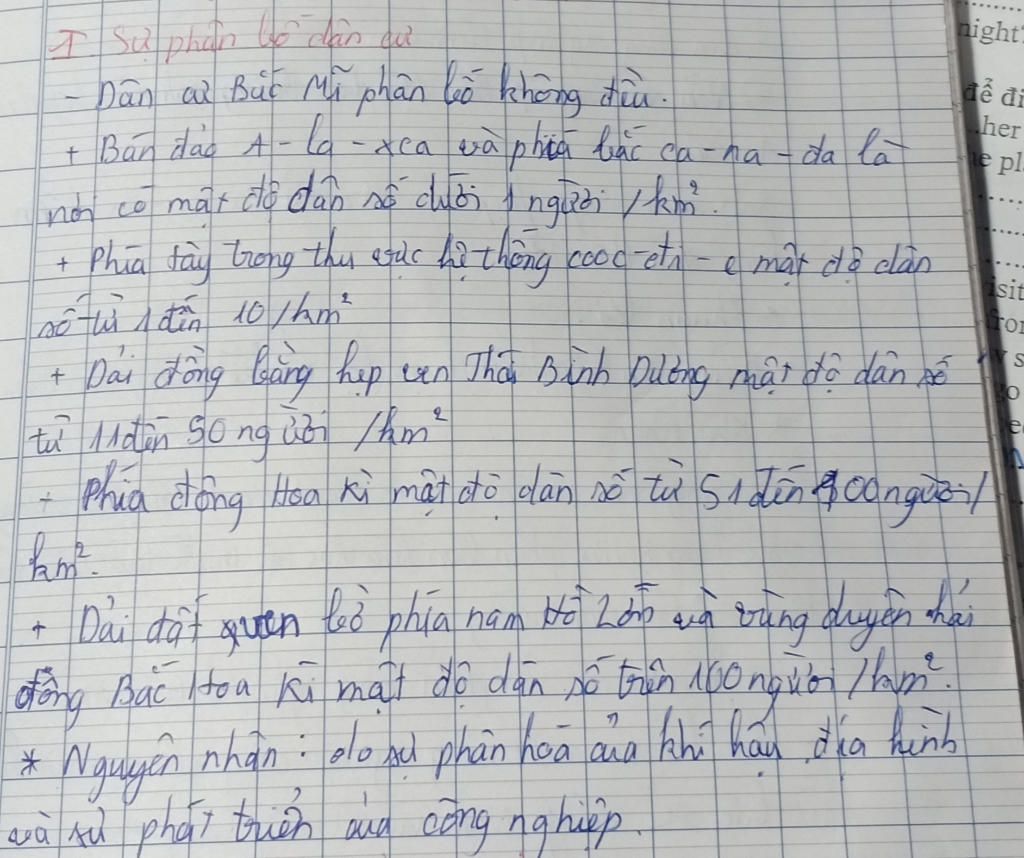 I Sự phân bố dân cư
- Dân cư Bắc Mĩ phân bố không đều.
+ Bán đảo A-la-xca và phía bắc ca-na-da là
nơi có mật độ dân số dưới 1 người/km².
+ Phía tây trong thu vực hệ thống cooc-đi-e mật độ dân
số từ 1 đến 10/km²
+ Dải đồng bằng hẹp ven Thái Bình Dương mật độ dân số
từ 11 đến 50 người/km²
+ Phía đông Hoa Kì mật độ dân số từ 51 đến 100 người/
km².
+ Dải đất quen bờ phía nam Hồ Lớn và vùng duyên hải
đông Bắc Hoa Kì mật độ dân số trên 100 người/km².
* Nguyên nhân: do sự phân hoá của khí hậu, địa hình
và sự phát triển của công nghiệp.
night?
để đi
her
e pl